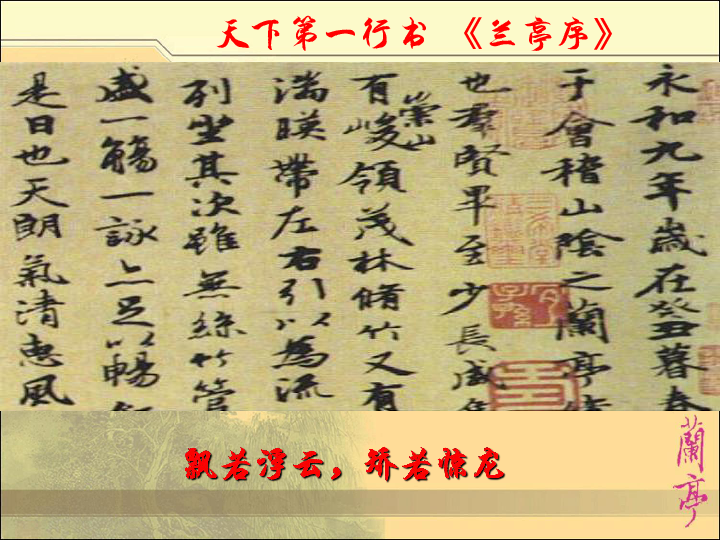 天下第一行书 《兰亭序》
永和九年歲在癸丑暮春
于會稽山陰之蘭亭
也羣賢畢至少長咸
有崇山峻領茂林脩竹又有
湍暎帶左右引以為流
列坐其次雖無絲竹管
盛一觴一詠亦足以暢
是日也天朗氣清惠風
飘若浮云，矫若惊龙
蘭亭